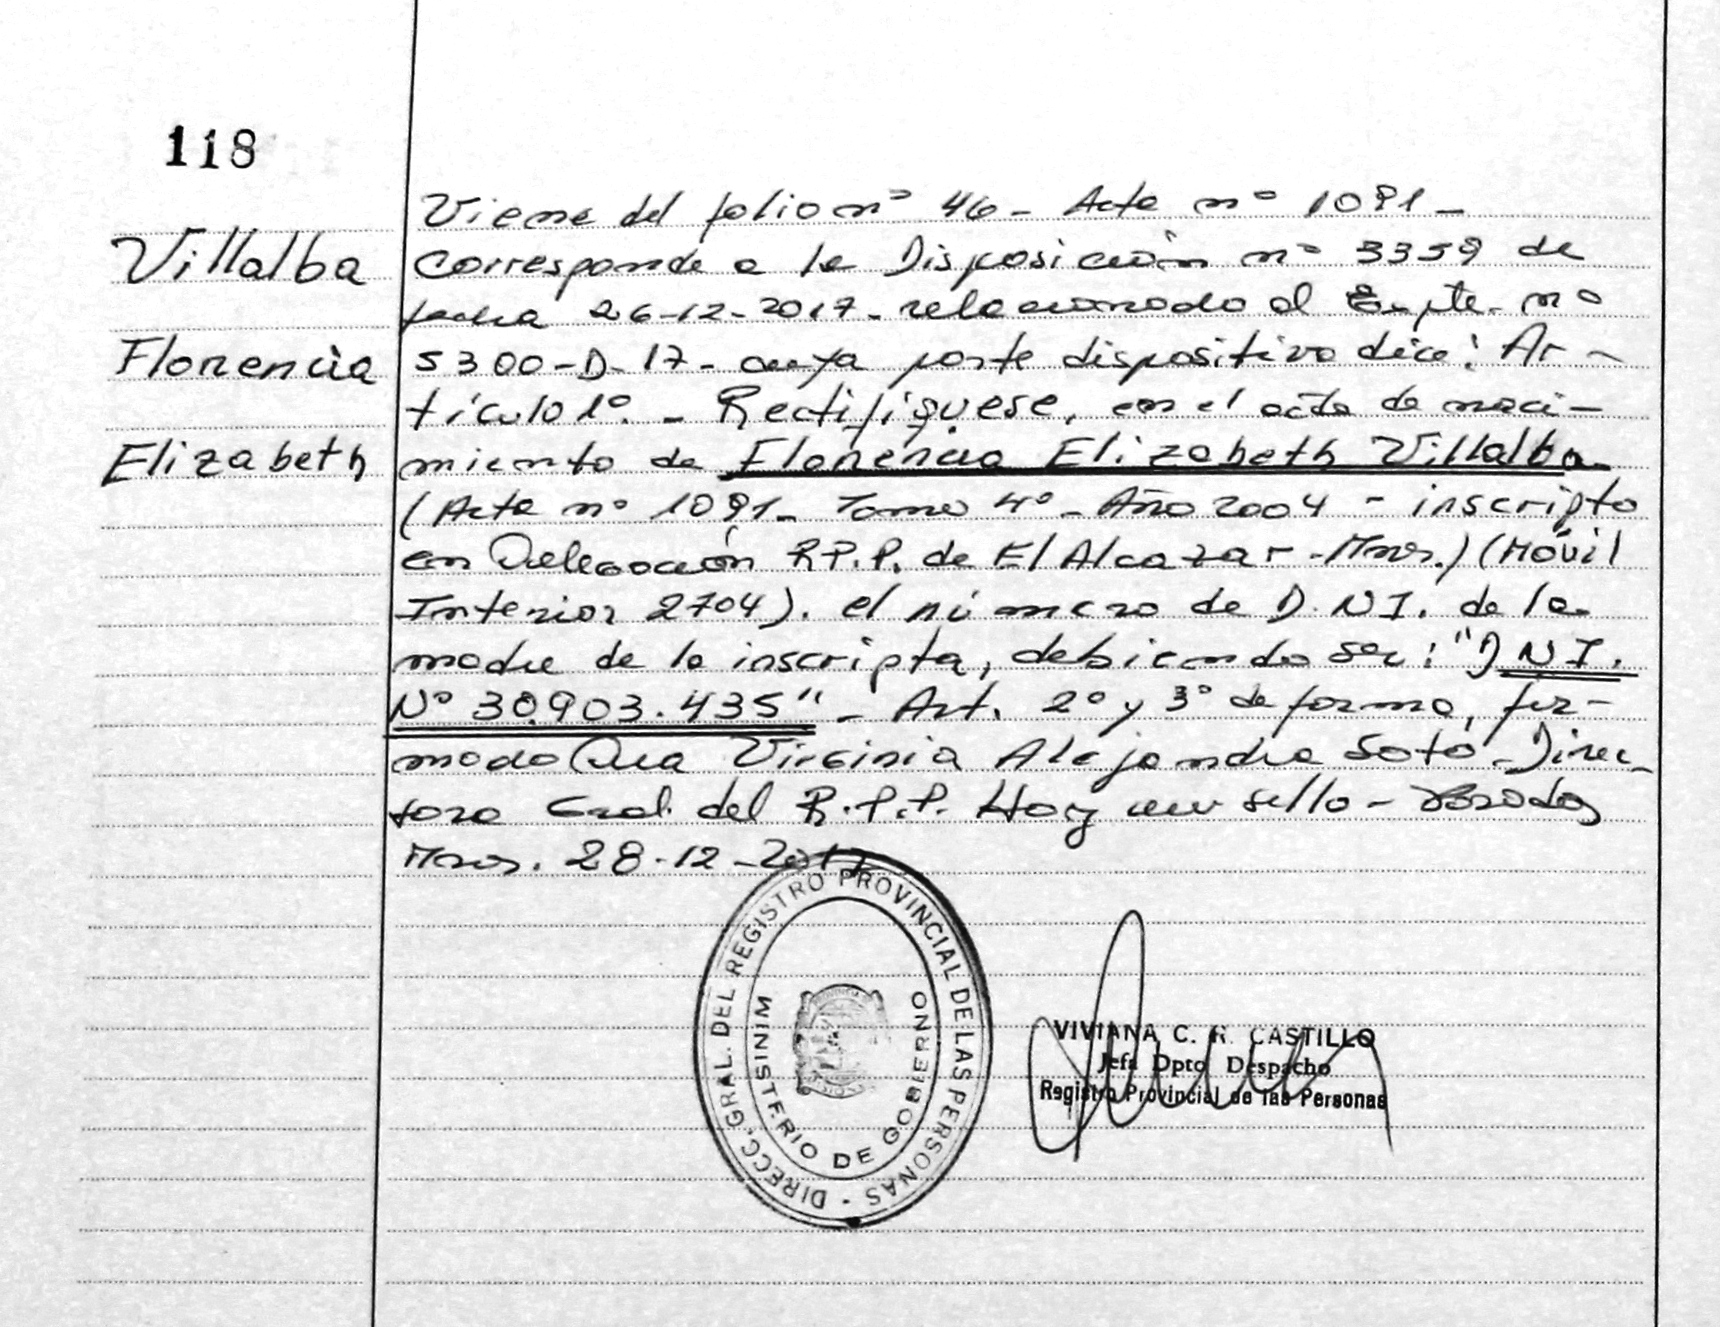 118
Villalba
Florencia
Elizabeth
Viene del folio nº 46 - Acta nº 1091 -
Corresponde a la Disposición nº 3359 de
fecha 26-12-2017 - relacionado al Expte. nº
5300-D-17 - cuya parte dispositiva dice: Ar-
tículo 1º. - Rectifíquese, en el acta de naci-
miento de Florencia Elizabeth Villalba
(Acta nº 1091 - Tomo 4º - Año 2004 - inscripta
en Delegación R.P.P. de El Alcazar - Mnes.) (Móvil
Interior 2704). el número de D.NI. de la
madre de la inscripta, debiendo ser: "DNI.
Nº 30.903.435" - Art. 2º y 3º de forma, fir-
mado Dra Virginia Alejandra Soto - Direc-
tora Gral. del R.P.P. Hay un sello - Posadas
Mnes. 28-12-2017
DIRECC. GRAL. DEL REGISTRO PROVINCIAL DE LAS PERSONAS -
MINISTERIO DE GOBIERNO
VIVIANA C. R. CASTILLO
Jefa Dpto Despacho
Registro Provincial de las Personas